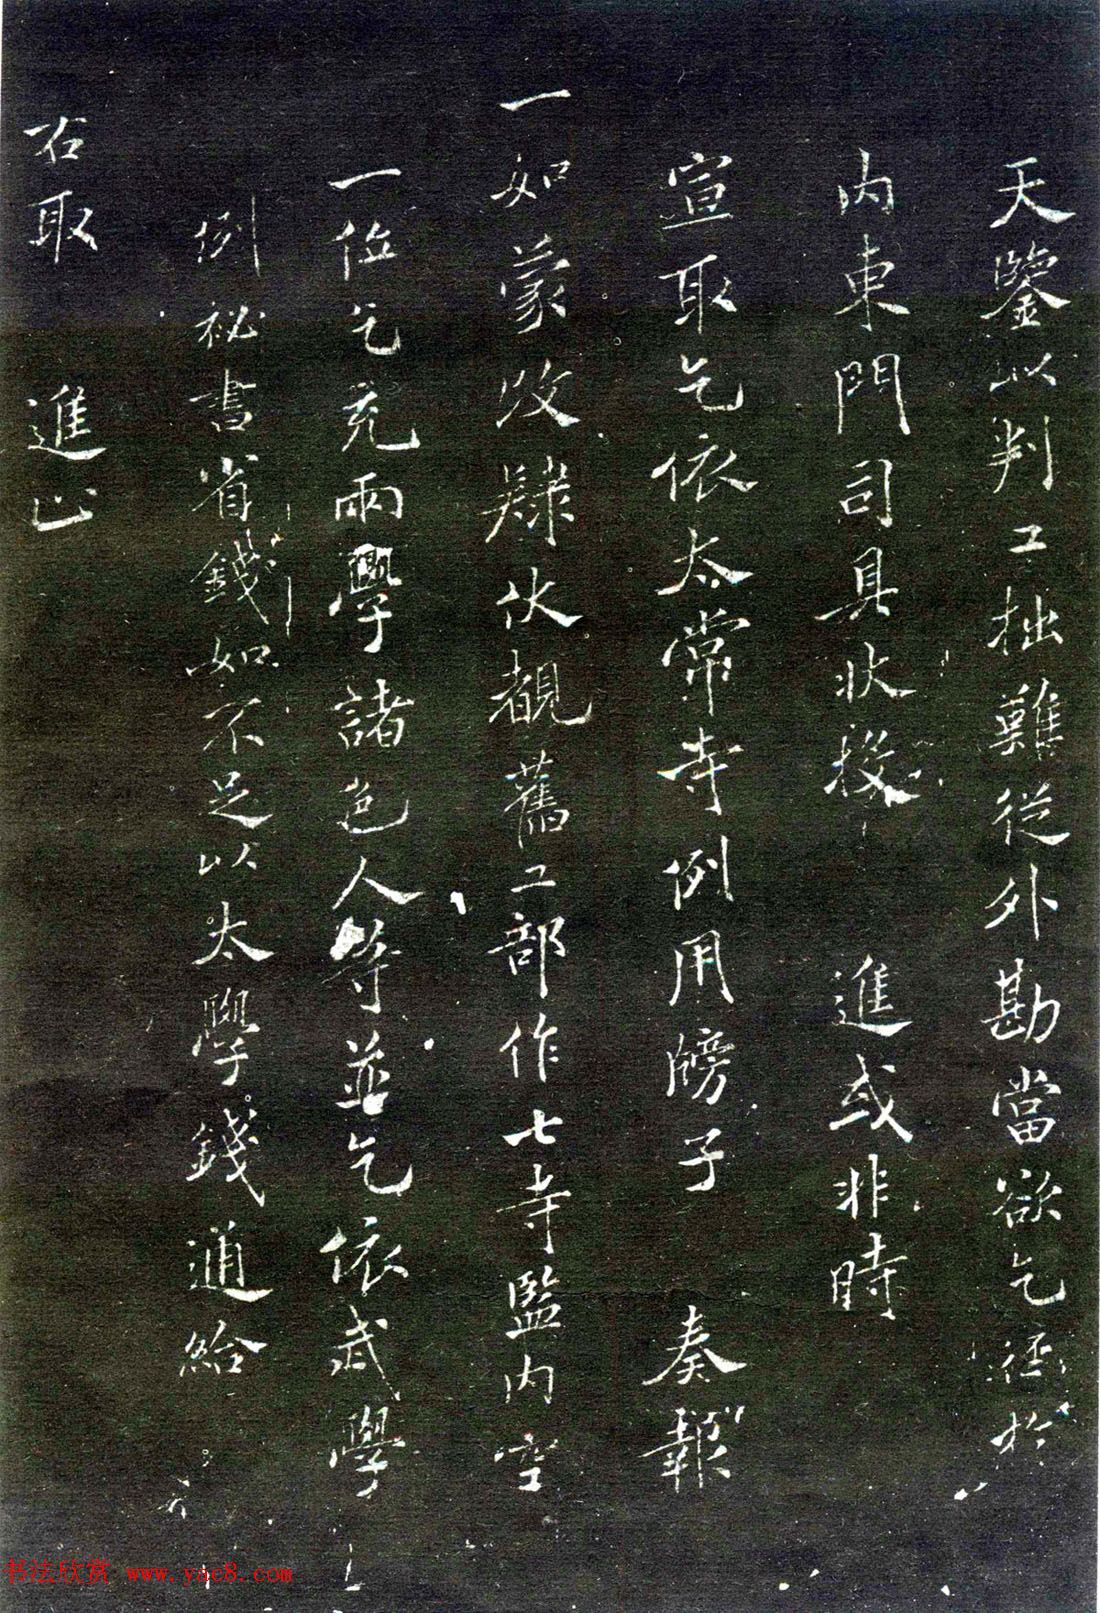 天鑒以判工拙難從外勘當欲乞徑於
内東門司具狀投 進或非時
宣取乞依太常寺例用牓子 奏報
一如蒙改肄伏觀舊工部作七寺監内空
一位乞充兩學諸色人等並乞依武學
例祕書省錢如不足以太學錢通給
右取 進止
书法欣赏 www.yac8.com